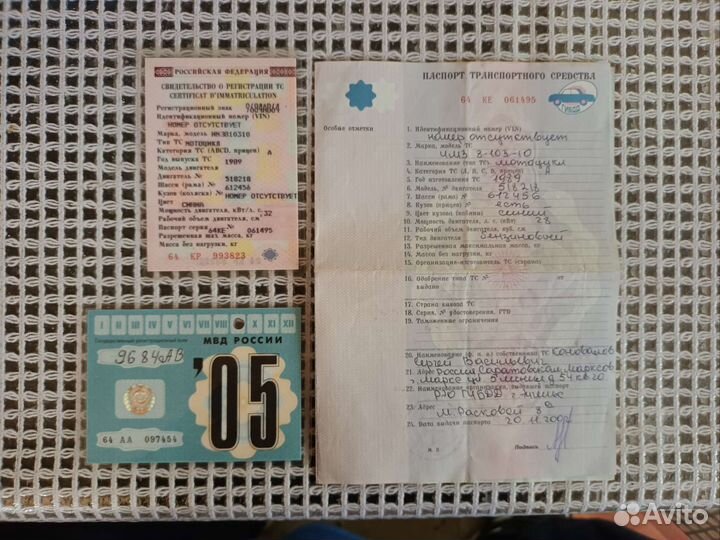 РОССИЙСКАЯ ФЕДЕРАЦИЯ
СВИДЕТЕЛЬСТВО О РЕГИСТРАЦИИ ТС
CERTIFICAT D'IMMATRICULATION
Регистрационный знак
Идентификационный номер (VIN)
НОМЕР ОТСУТСТВУЕТ
Марка, модель ИМЗ810310
Тип ТС МОТОЦИКЛ
Категория ТС (ABCD, прицеп) A
Год выпуска ТС 1989
Модель двигателя
Двигатель № 518218
Шасси (рама) № 612456
Кузов (коляска) № НОМЕР ОТСУТСТВУЕТ
Цвет
СИНИЙ
Мощность двигателя, кВт/л. с. 32
Рабочий объем двигателя, см³
Паспорт серия 64КЕ № 061495
Разрешенная max масса, кг
Масса без нагрузки, кг
64 КР 993823
I II III IV V VI VII VIII X XI XII
МВД РОССИИ
Государственный регистрационный знак
'05
64 АА 097454
ПАСПОРТ ТРАНСПОРТНОГО СРЕДСТВА
64 КЕ 061495
Особые отметки
1. Идентификационный номер (VIN)
номер отсутствует
2. Марка, модель ТС
ИМЗ 8-103-10
3. Наименование (тип ТС) мотоцикл
4. Категория ТС (A, B, C, D, прицеп) A
5. Год изготовления ТС 1989
6. Модель, № двигателя 518218
7. Шасси (рама) № 612456
8. Кузов (прицеп) № есть
9. Цвет кузова (кабины) синий
10. Мощность двигателя, л. с. (кВт) 28
11. Рабочий объем двигателя, куб. см
12. Тип двигателя бензиновый
13. Разрешенная максимальная масса, кг
14. Масса без нагрузки, кг
15. Организация-изготовитель ТС (страна)
16. Одобрение типа ТС № от
выдано
17. Страна вывоза ТС
18. Серия, № ГТД
19. Таможенные ограничения
20. Наименование (ф. и. о.) собственника ТС Коновалов
Сергей Васильевич
21. Адрес Россия Саратовская
22. Наименование организации, выдавшей паспорт
23. Адрес
М. Расковой 8а
24. Дата выдачи паспорта 20.11.
М. П. Подпись
Avito